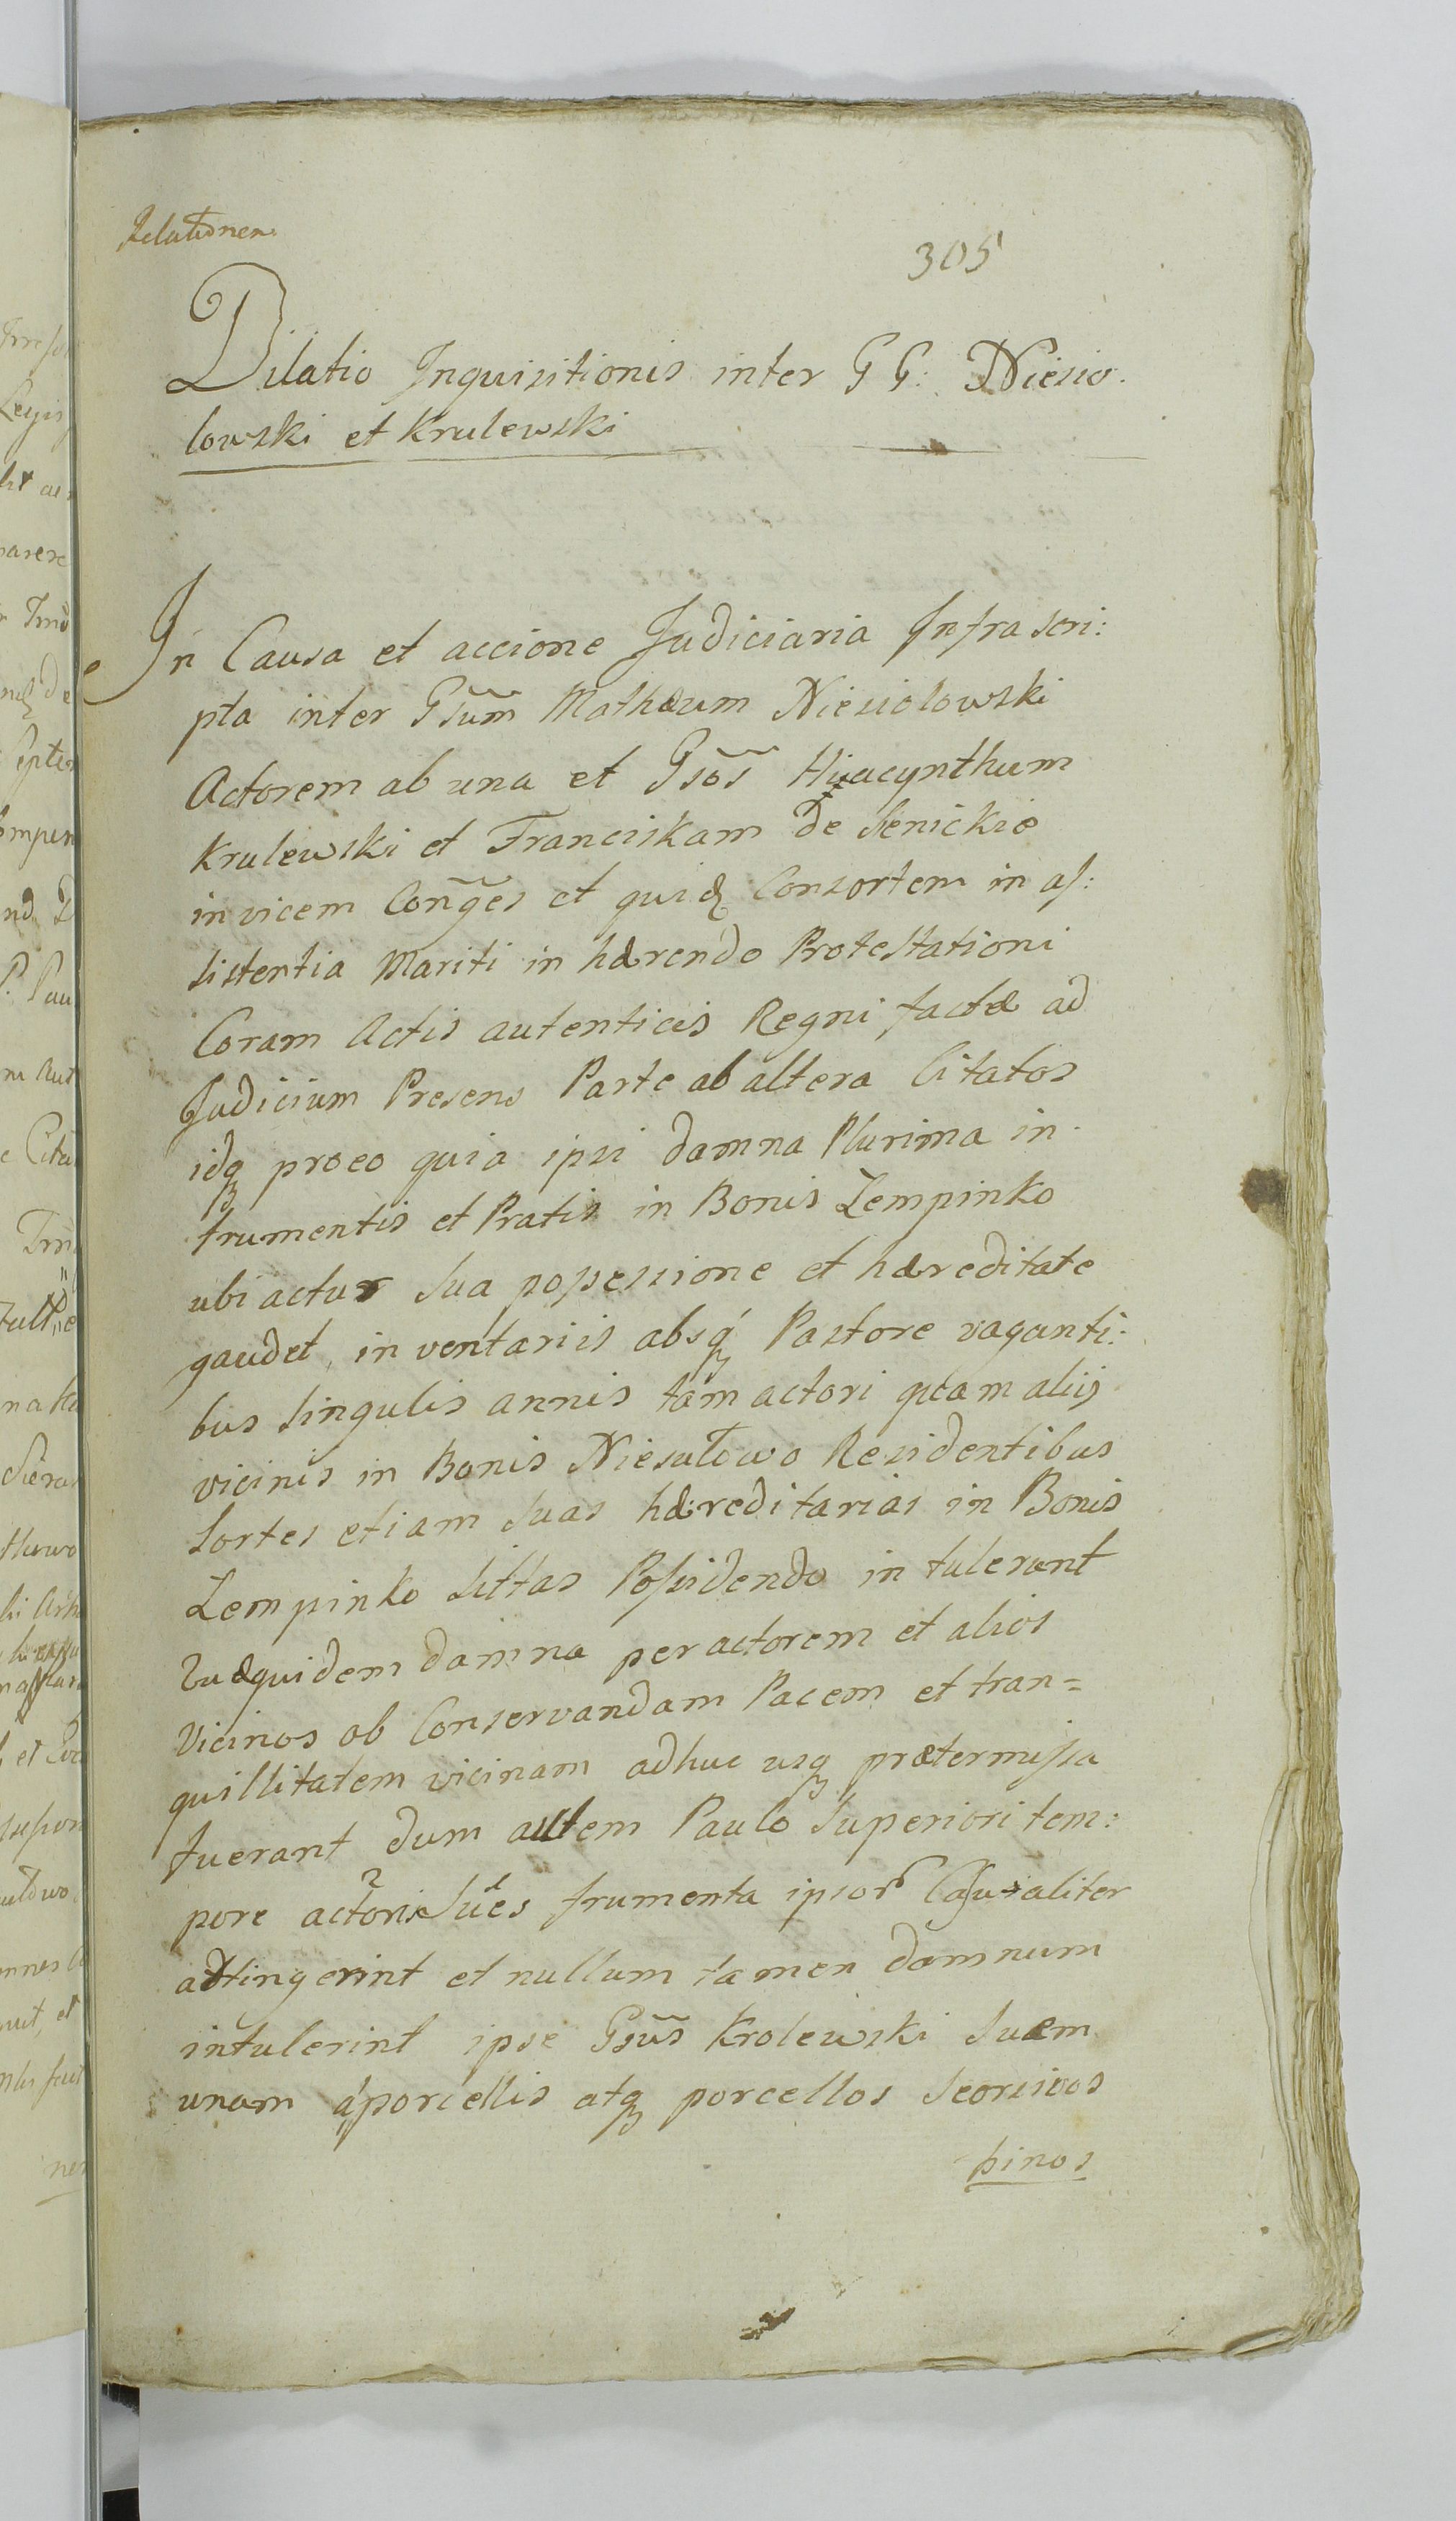 Relationem
305
Dilatio Inquisitionis inter G G: Niesio.
lowski et Krulewski
In Causa et accione Judiciaria Infra scri:
pta inter Gsūm Mathæum Niesiolowski
Actorem ab una et Gsōs Hyacynthum
Krulewski et Franciskam de Senickie
in vicem Con̄ges et quidȩ Consortem in aſ:
sistentia Mariti in hærendo Protestationi
Coram Actis autenticis Regni factæ ad
Judicium Presens Parte ab altera Citatos
idq proeo quia ipsi damna Plurima in
frumentis et Pratis in Bonis Lempinko
ubi actor sua poſsessione et hæreditate
gaudet, in ventariis absq́ Pastore vaganti:
bus singulis annis tam actori quam aliis
vicinis in Bonis Niesułowo Residentibus
Sortes etiam suas hæreditarias in Bonis
Lempinko sittas Poſsidendo in tulerunt
Quæquidem damna per actorem et alios
Vicinos ob Conservandam Pacem et tran=
quillitatem vicinam adhuc usq prætermiſsa
fuerant dum autem Paulo Superiori tem:
pore actoris Sues frumenta ipsor Casualiter
adtingerint et nullum tamen damnum
intulerint ipse Gsūs Krolewski Suem
unam á porcellis atq porcellos Seorsivos
binos